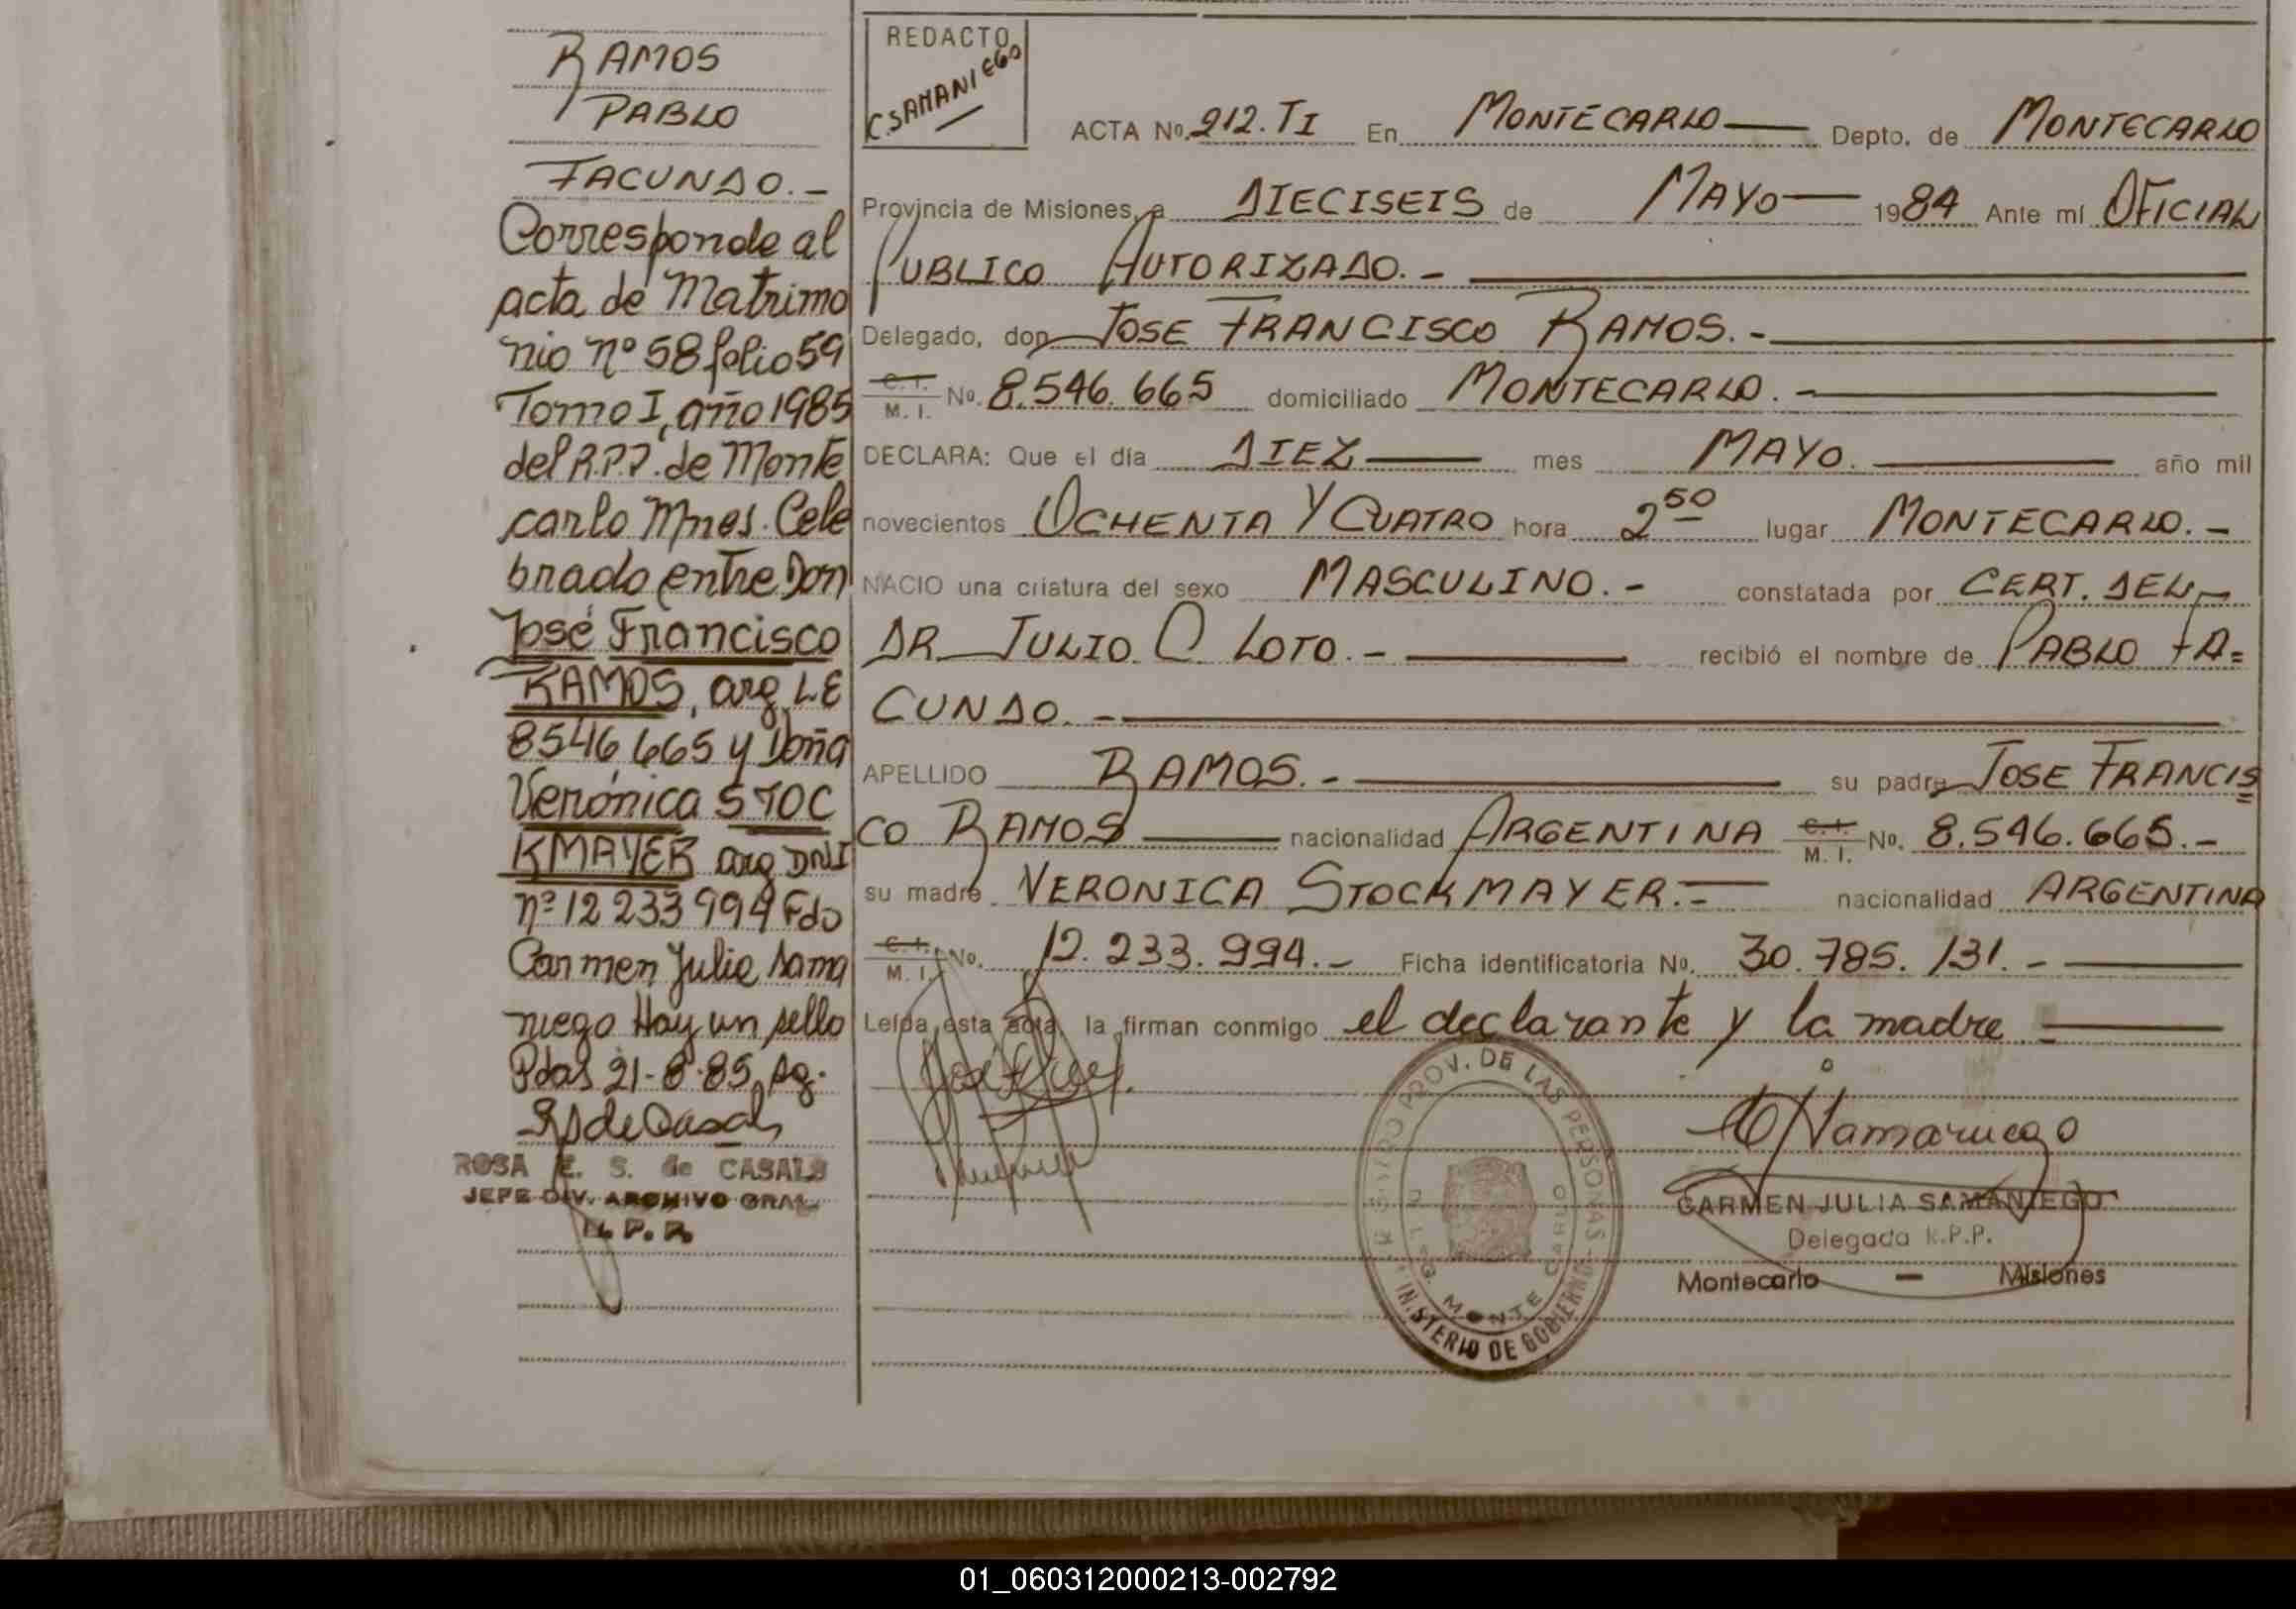 RAMOS
PABLO
FACUNDO.-
Corresponde al
acta de Matrimo
nio nº 58 folio 59
Tomo I, año 1985
del R.P.P. de Monte
carlo Mnes. Cele
brado entre Don
José Francisco
RAMOS, arg LE
8546,665 y Doña
Verónica STOC
KMAYER arg DNI
nº 12 233 994 Fdo
Carmen Julia Sama
niego Hay un sello
Pdas 21-8-85
ROSA E. S. de CASALS
JEFE DIV. ARCHIVO GRAL.
R. P. P.
REDACTO
C. SAMANIEGO
ACTA No. 212. TI En MONTECARLO Depto. de MONTECARLO
Provincia de Misiones, a DIECISEIS de MAYO 1984 Ante mí OFICIAL
PUBLICO AUTORIZADO.-
Delegado, don JOSE FRANCISCO RAMOS.-
C. I. M. I. No. 8.546.665 domiciliado MONTECARLO.-
DECLARA: Que el día DIEZ mes MAYO. año mil
novecientos OCHENTA Y CUATRO hora 2 50 lugar MONTECARLO.-
NACIO una criatura del sexo MASCULINO.- constatada por CERT. DEL
DR JULIO C. LOTO.- recibió el nombre de PABLO FA=
CUNDO.-
APELLIDO RAMOS.- su padre JOSE FRANCIS
CO RAMOS nacionalidad ARGENTINA C. I. M. I. No. 8.546.665.-
su madre VERONICA STOCKMAYER.- nacionalidad ARGENTINA
C. I. M. I. No. 12.233.994.- Ficha identificatoria No. 30.785.131.-
Leída esta acta, la firman conmigo el declarante y la madre
REGISTRO PROV. DE LAS PERSONAS
MINISTERIO DE GOBIERNO
DELEG. MONTE CARLO
CARMEN JULIA SAMANIEGO
Delegada R.P.P.
Montecarlo - Misiones
01_060312000213-002792